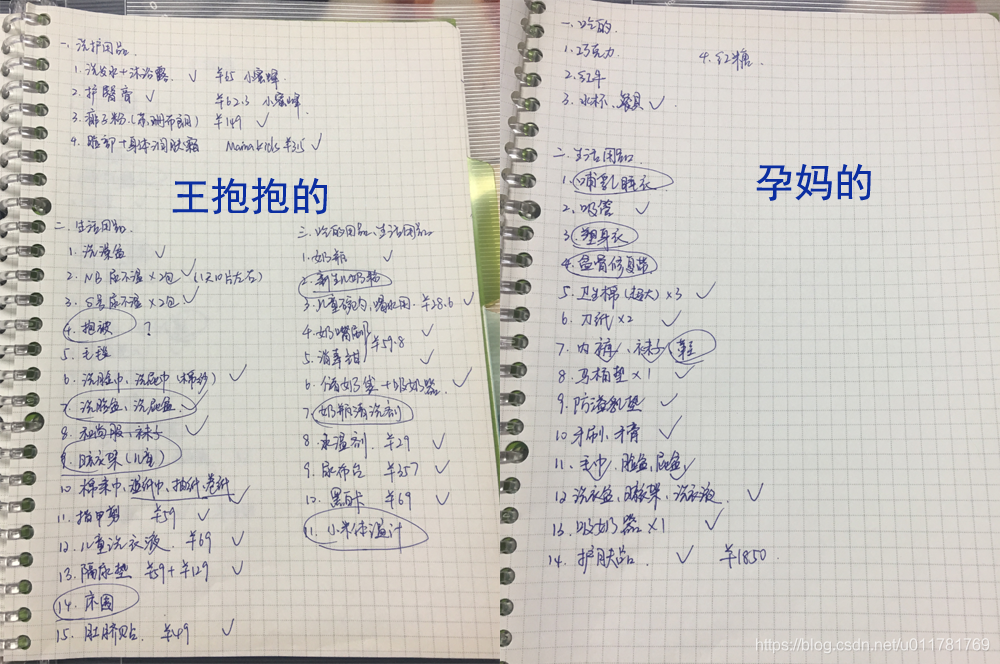 一. 洗护用品
1. 洗发水+沐浴露 ✓ ¥65 小蜜蜂
2. 护臀膏 ✓ ¥62.3 小蜜蜂
3. 痱子粉 ¥149 ✓
4. 脸部+身体润肤霜 Mama kids ¥315 ✓
王抱抱的
二. 生活用品
1. 洗澡盆 ✓
2. NB尿不湿×2包 ✓ (1天10片左右)
3. S号尿不湿×2包 ✓
4. 抱被 ?
5. 毛毯
6. 洗脸巾、洗屁巾 (棉纱) ✓
7. 洗脸盆、洗屁盆 ✓
8. 和尚服、袜子 ✓
9. 晾衣架 (儿童)
10. 棉柔巾、湿纸巾、抽纸、卷纸 ✓
11. 指甲剪 ¥59 ✓
12. 儿童洗衣液 ¥69 ✓
13. 隔尿垫 ¥59+¥129 ✓
14. 床围
15. 肚脐贴 ¥49 ✓
三. 吃的用品、生活用品
1. 奶瓶 ✓
2. 新生儿奶粉
3. 儿童碗、喝水用 ¥28.6 ✓
4. 奶嘴刷 ✓
¥59.8
5. 消毒钳 ✓
6. 储奶袋+吸奶器 ✓
7. 奶瓶清洗剂
8. 柔湿剂 ¥29 ✓
9. 尿布台 ¥357 ✓
10. 黑白卡 ¥69 ✓
11. 小米体温计
一. 吃的
1. 巧克力
4. 红糖
2. 红牛
3. 水杯、餐具 ✓
二. 生活用品
孕妈的
1. 哺乳睡衣
2. 吸管 ✓
3. 塑身衣
4. 盆骨修复带
5. 卫生棉 (超大) ×3 ✓
6. 刀纸×2 ✓
7. 内裤、袜子、鞋
8. 马桶垫×1 ✓
9. 防溢乳垫 ✓
10. 牙刷、牙膏 ✓
11. 毛巾、脸盆、屁盆
12. 洗衣盆、晾衣架、洗衣液 ✓
13. 吸奶器×1 ✓
14. 护肤品 ✓ ¥1850
https://blog.csdn.net/u011781769